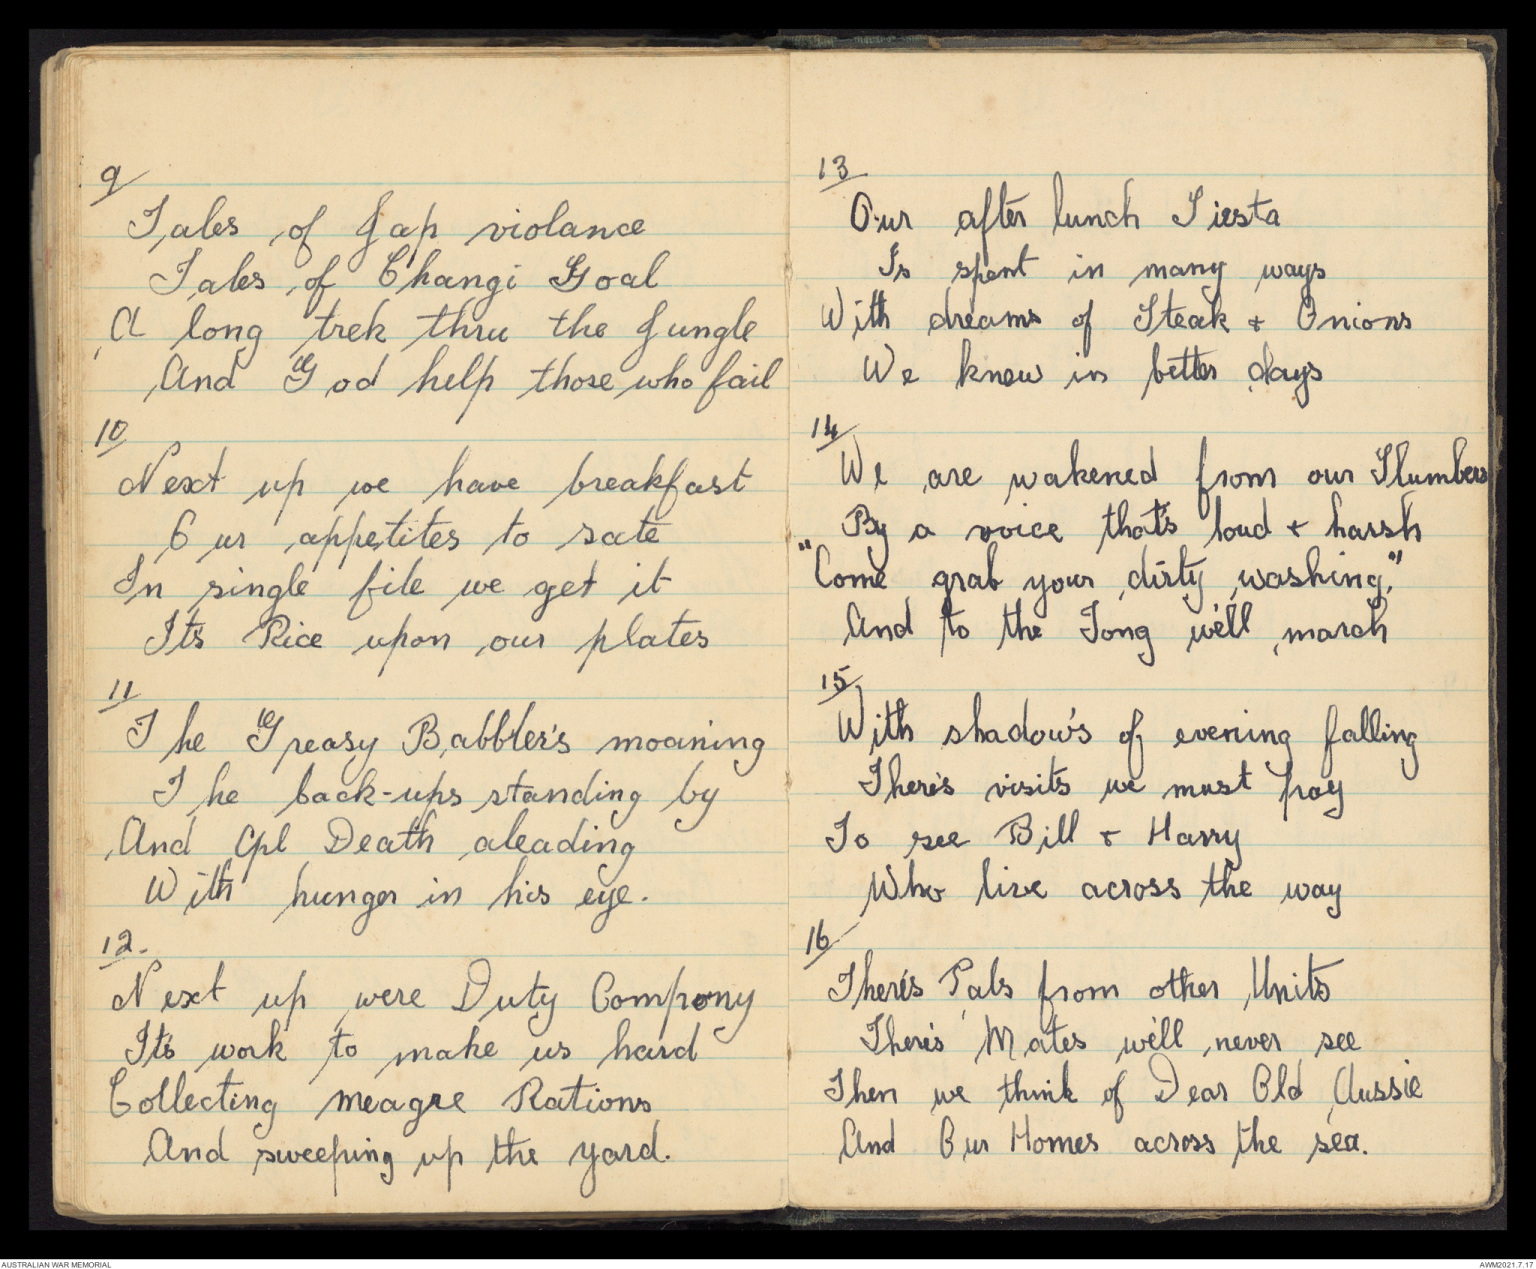 9/
Tales of Jap violance
Tales of Changi Goal
A long trek thru the Jungle
And God help those who fail
10
Next up we have breakfast
Our appetites to sate
In single file we get it
It's Rice upon our plates
11
The Greasy Babbler's moaning
The back-ups standing by
And Cpl Death aleading
With hunger in his eye.
12.
Next up were Duty Company
It's work to make us hard
Collecting meagre Rations
And sweeping up the yard.
13
Our after lunch Siesta
Is spent in many ways
With dreams of Steak + Onions
We knew in better days
14
We are wakened from our Slumbers
By a voice that's loud + harsh
"Come grab your dirty washing,"
And to the Tong we'll march
15
With shadow's of evening falling
There's visits we must pay
To see Bill + Harry
Who live across the way
16
There's Pals from other Units
There's Mates we'll never see
Then we think of Dear Old Aussie
And Our Homes across the sea.
AUSTRALIAN WAR MEMORIAL
AWM2021.7.17